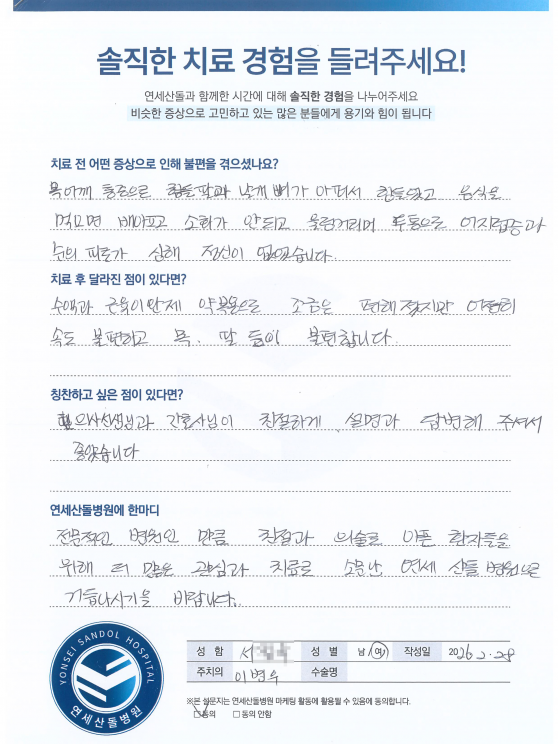 솔직한 치료 경험을 들려주세요!
연세산돌과 함께한 시간에 대해 솔직한 경험을 나누어주세요
비슷한 증상으로 고민하고 있는 많은 분들에게 용기와 힘이 됩니다
치료 전 어떤 증상으로 인해 불편을 겪으셨나요?
목어깨 통증으로 팔과 날개뼈가 아파서 힘들었고 음식을
먹으면 배아프고 소화가 안되고 울렁거리며 두통으로 어지럼증과
눈의 피로가 심해 정신이 없었습니다.
치료 후 달라진 점이 있다면?
수액과 근육이완제 약복용으로 조금은 편해졌지만 여전히
속도 불편하고 목, 팔 등이 불편합니다.
칭찬하고 싶은 점이 있다면?
의사선생님과 간호사님이 친절하게 설명과 답변해 주셔서
좋았습니다
연세산돌병원에 한마디
전문적인 병원인 만큼 친절과 의술로 아픈 환자들을
위해 더 많은 관심과 치료로 소문난 연세 산돌 병원으로
거듭나시기를 바랍니다.
YONSEI SANDOL HOSPITAL
연세산돌병원
성 함 서 성 별 남 / 여 작성일 2026. 2. 28
주치의 이병우 수술명
※본 설문지는 연세산돌병원 마케팅 활동에 활용될 수 있음에 동의합니다.
동의 □ 동의 안함